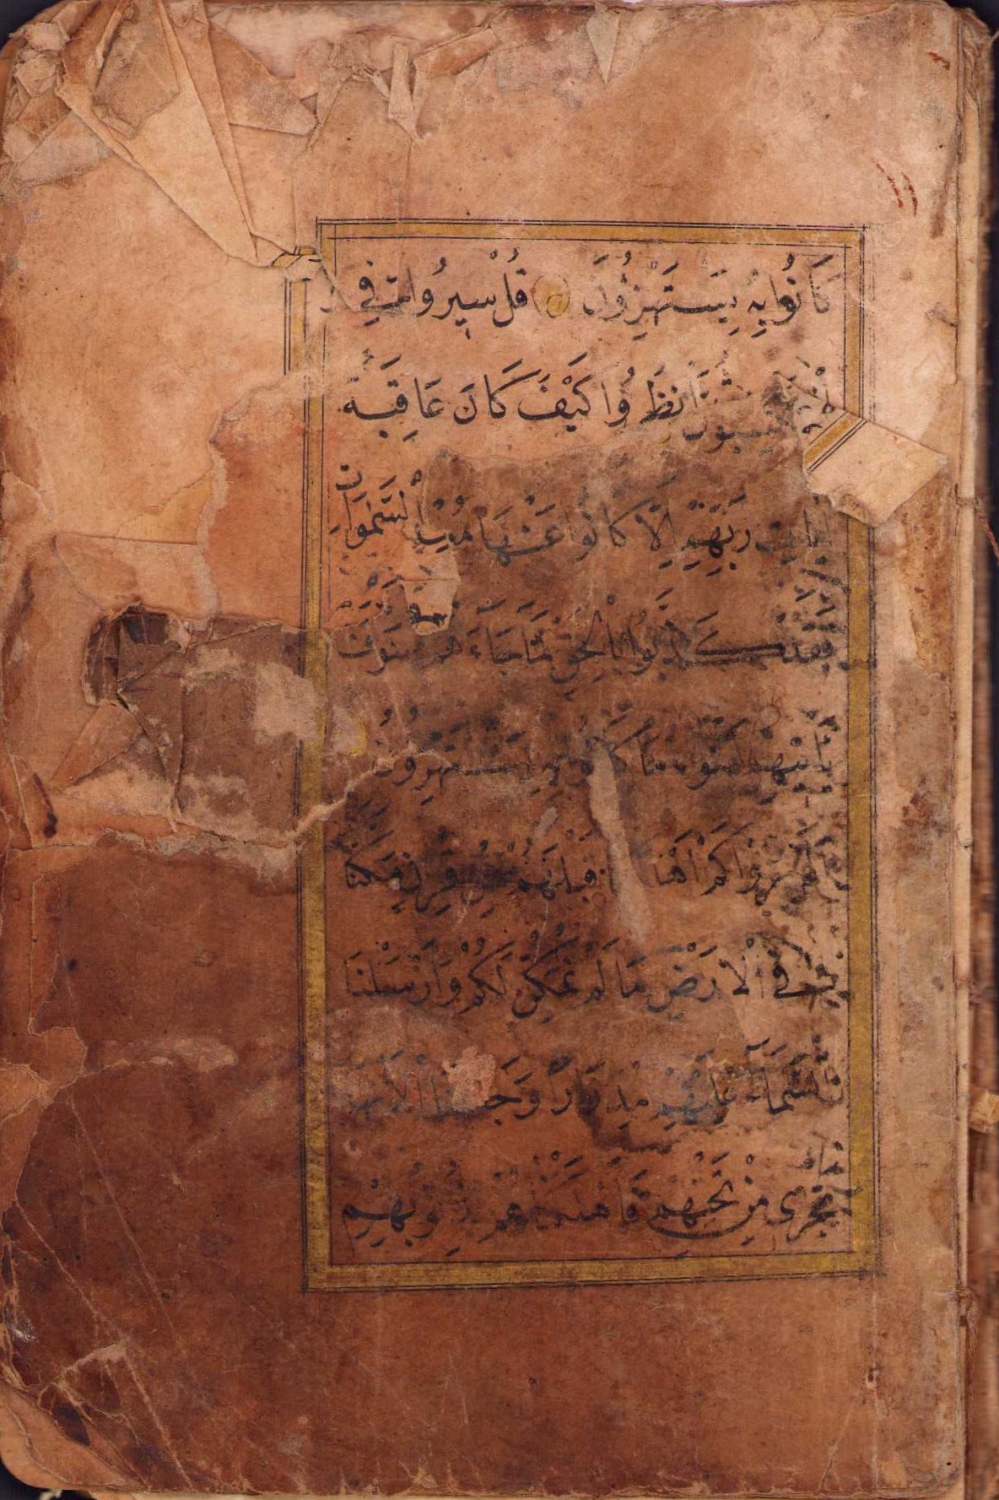 كَانُوا بِهِ يَسْتَهْزِؤُنَ قُلْ سِيرُوا فِي
انظُرُوا كَيْفَ كَانَ عَاقِبَةُ
رَبِّهِمْ إِلَّا كَانُوا عَنْهَا السَّمٰوَاتِ
فَقَدْ كَذَّبُوا بِالْحَقِّ لَمَّا جَاءَهُمْ فَسَوْفَ
يَأْتِيهِمْ مَا كَانُوا بِهِ يَسْتَهْزِؤُنَ
يَرَوْا كَمْ قَبْلِهِمْ مِنْ قَرْنٍ مَكَّنَّا
فِي الْأَرْضِ مَا لَمْ نُمَكِّنْ لَكُمْ وَأَرْسَلْنَا
السَّمَاءَ عَلَيْهِمْ مِدْرَارًا الْأَنْهَارَ
تَجْرِي مِنْ تَحْتِهِمْ فَأَهْلَكْنَاهُمْ بِذُنُوبِهِمْ